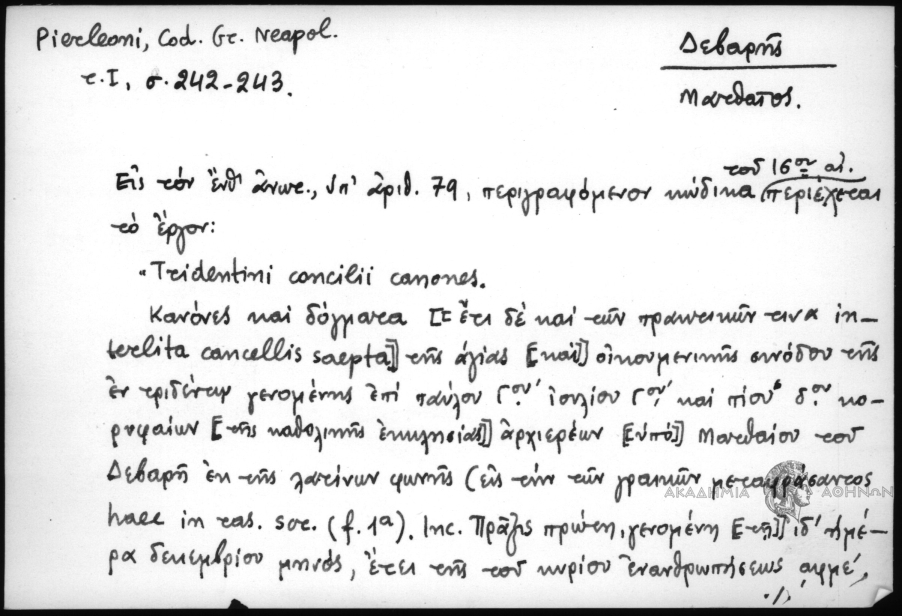 Pierleoni, Cod. Gr. Neapol.
τ. I, σ. 242-243.
Δεβαρῆς
Ματθαῖος.
τοῦ 16ου αἰ.
Εἰς τὸν ἔνθ' ἄνωτ., ὑπ' ἀριθ. 79, περιγραφόμενον κώδικα περιέχεται
τὸ ἔργον:
"Tridentini concilii canones.
Κανόνες καὶ δόγματα [= ἔτι δὲ καὶ τῶν πρακτικῶν τινα in-
terlita cancellis saepta] τῆς ἁγίας [καὶ] οἰκουμενικῆς συνόδου τῆς
ἐν τριδέντῳ γενομένης ἐπὶ παύλου Γου, ἰουλίου Γου, καὶ πίου δου κο-
ρυφαίων [τῆς καθολικῆς ἐκκλησίας] ἀρχιερέων [ὑπὸ] Ματθαίου τοῦ
Δεβαρῆ ἐκ τῆς λατίνων φωνῆς (εἰς τὴν τῶν γραικῶν μεταφράσαντος
haec in ras. scr. (f. 1a). Inc. Πρᾶξις πρώτη, γενομένη [τῇ] ιδ' ἡμέ-
ρᾳ δεκεμβρίου μηνός, ἔτει τῆς τοῦ κυρίου ἐνανθρωπήσεως ͵αφμέ,
./.
ΑΚΑΔΗΜΙΑ ΑΘΗΝΩΝ